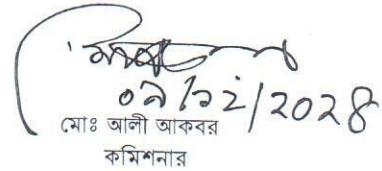 ০৯/১২/২০২৪
মোঃ আলী আকবর
কমিশনার